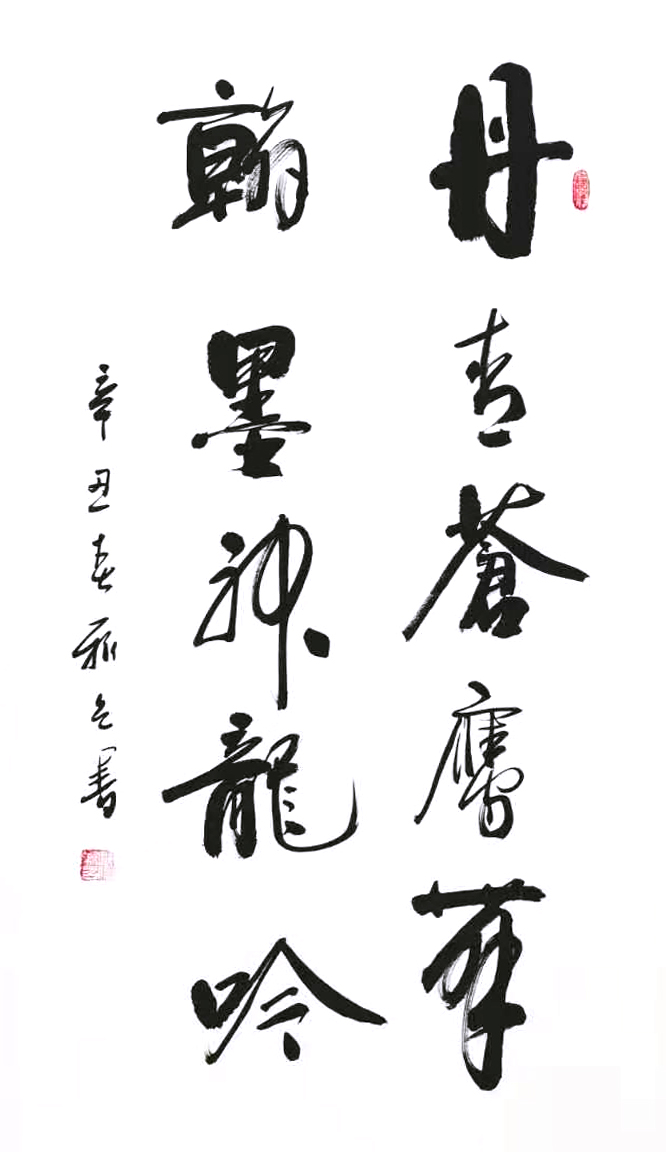 丹青蒼鷹舞
翰墨神龍吟
辛丑春雅之書